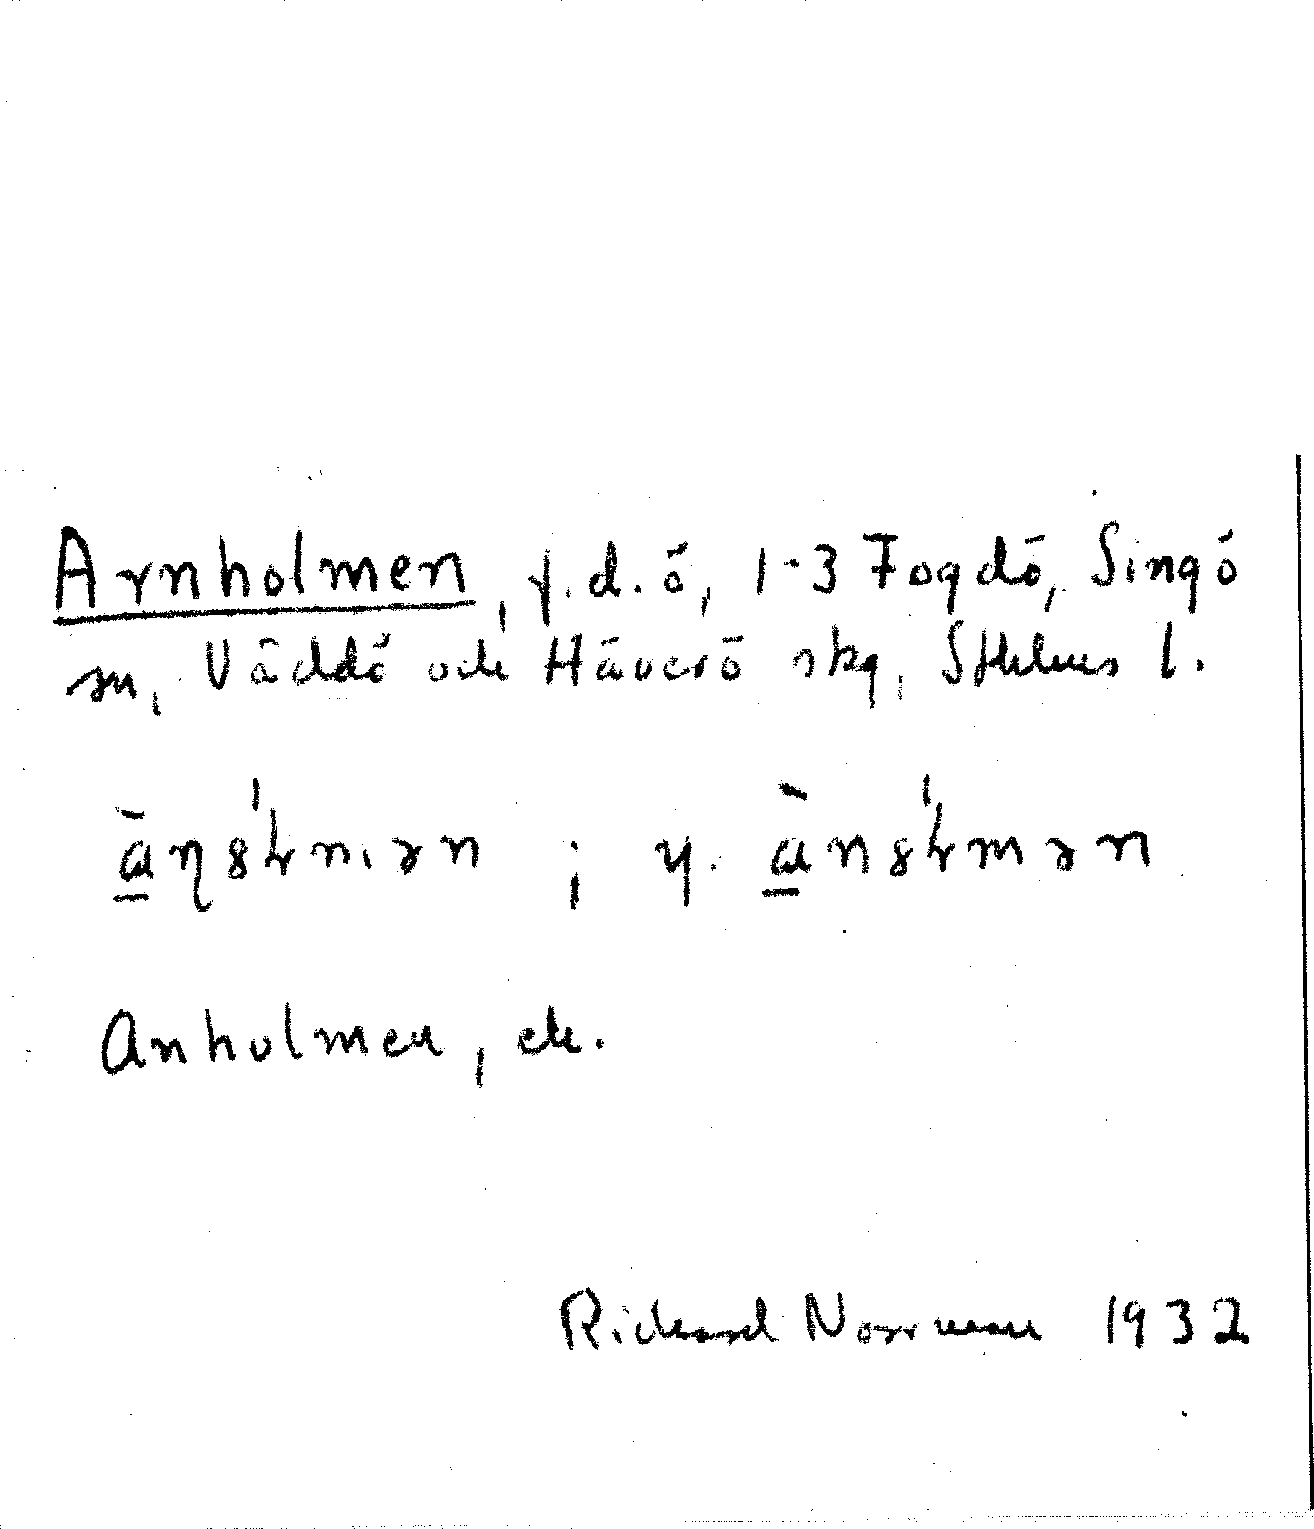 Arnholmen, f.d. ö, 1-3 Fogdö, Singö
sn, Väddö och Häverö skg, Sthlms l.
; y.
Anholmen, etc.
Rickard Norrman 1932